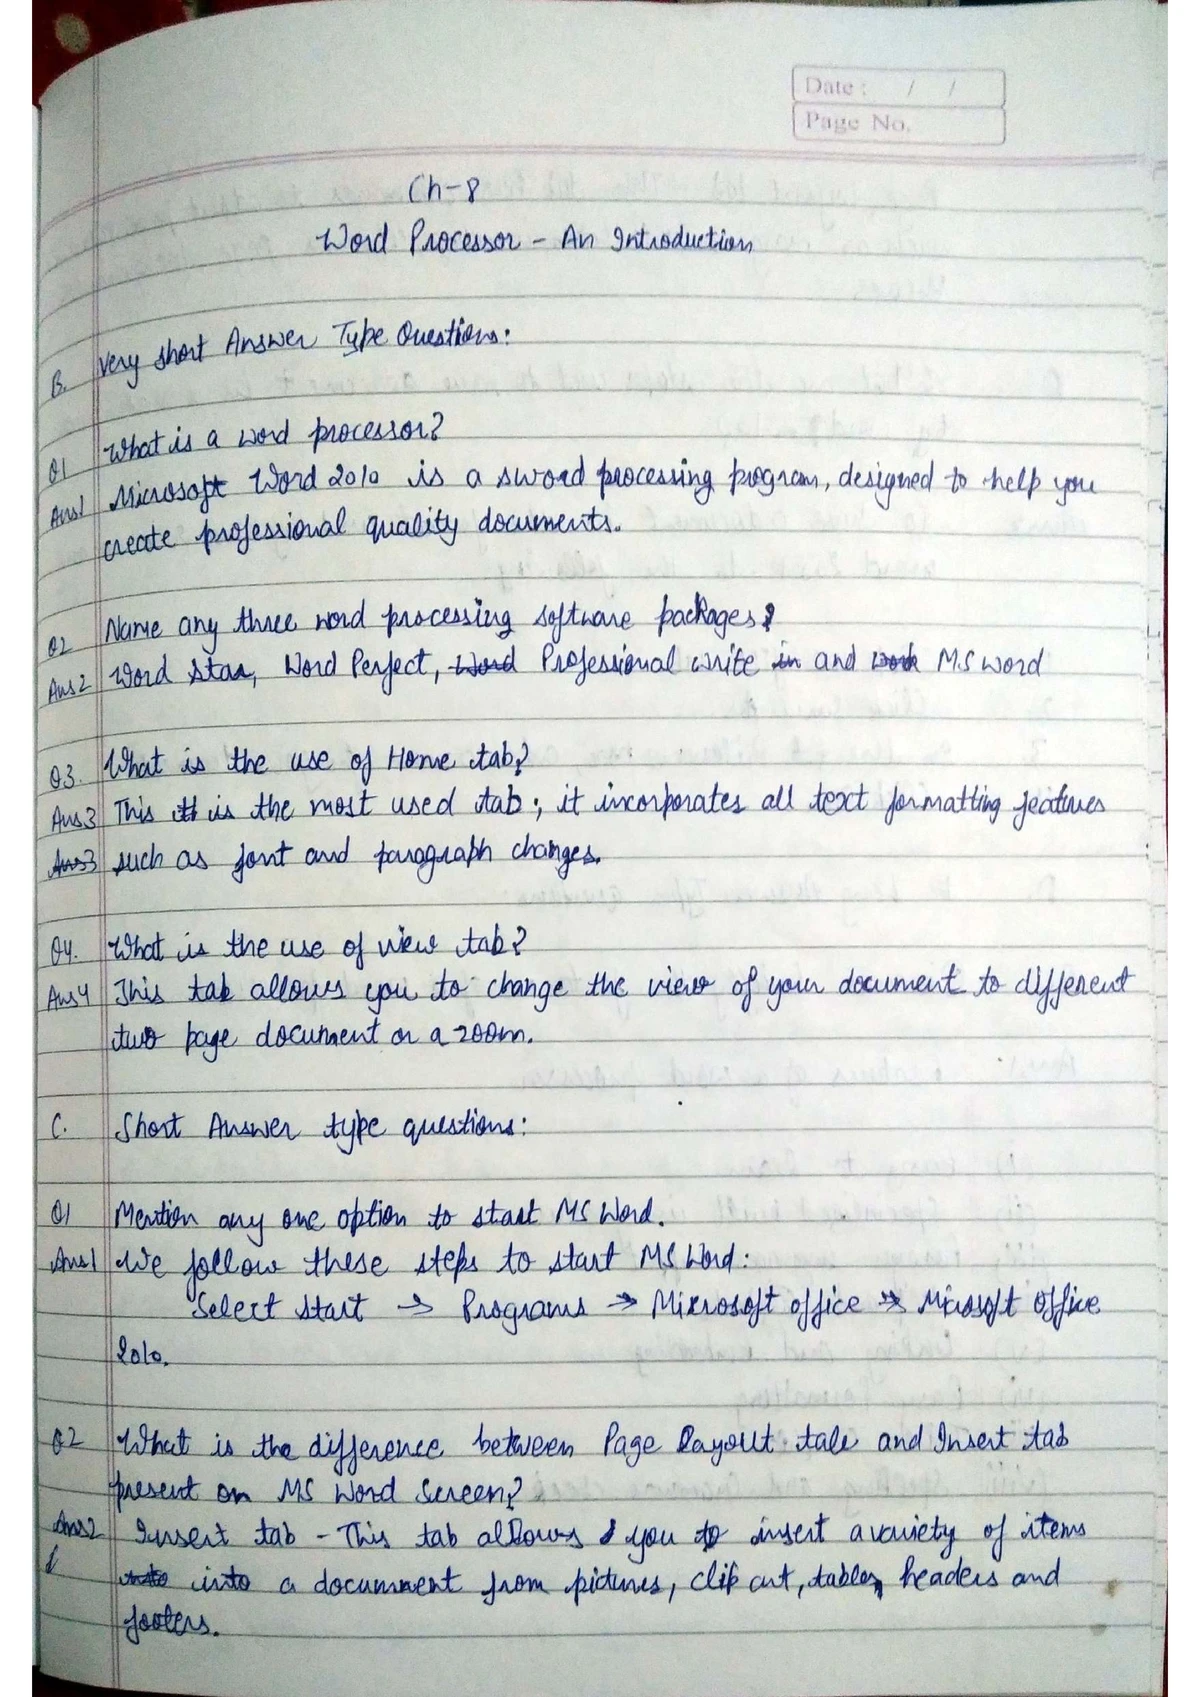 Date : / /
Page No.
Ch-8
Word Processor - An Introduction
B. Very short Answer Type Questions:
Q1 What is a word processor?
Ans1 Microsoft Word 2010 is a sword processing program, designed to help you
create professional quality documents.
Q2 Name any three word processing software packages?
Ans2 Word Star, Word Perfect, Word Professional write in and work MS word
Q3. What is the use of Home tab?
Ans3 This it is the most used tab; it incorporates all text formatting features
Ans3 such as font and paragraph changes.
Q4. What is the use of view tab?
Ans4 This tab allows you to change the view of your document to different
two page document or a zoom.
C. Short Answer type questions:
Q1 Mention any one option to start MS Word.
Ans1 We follow these steps to start MS Word:
Select Start → Programs → Mixrosoft office → Micosoft Office
2010.
Q2 What is the difference between Page Layout tale and Insert tab
present on MS Word Screen?
Ans2 Insert tab - This tab allows you to insert a variety of items
into into a document from pictures, clip art, tables, headers and
footers.